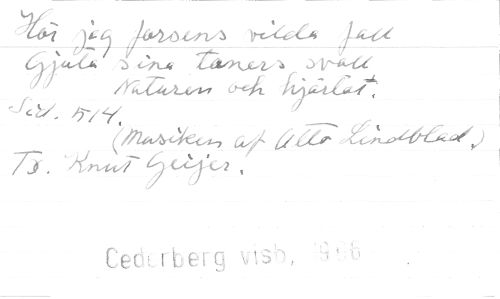 Hör jag forsens vilda fall
Gjuta sina toners svall
Naturen och hjärtat.
Sid. 514.
(Musiken af Otto Lindblad.)
Tr. Knut Geijer.
Cederberg visb, 1966